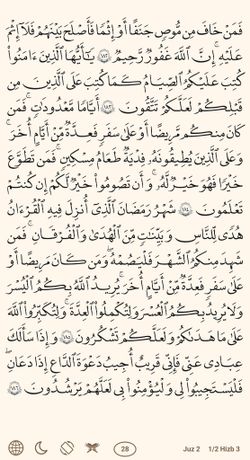 فَمَنْ خَافَ مِن مُّوصٍ جَنَفًا أَوْ إِثْمًا فَأَصْلَحَ بَيْنَهُمْ فَلَآ إِثْمَ
عَلَيْهِ ۚ إِنَّ ٱللَّهَ غَفُورٌ رَّحِيمٌ ١٨٢ يَـٰٓأَيُّهَا ٱلَّذِينَ ءَامَنُوا۟
كُتِبَ عَلَيْكُمُ ٱلصِّيَامُ كَمَا كُتِبَ عَلَى ٱلَّذِينَ مِن
قَبْلِكُمْ لَعَلَّكُمْ تَتَّقُونَ ١٨٣ أَيَّامًا مَّعْدُودَٰتٍ ۚ فَمَن
كَانَ مِنكُم مَّرِيضًا أَوْ عَلَىٰ سَفَرٍ فَعِدَّةٌ مِّنْ أَيَّامٍ أُخَرَ ۚ
وَعَلَى ٱلَّذِينَ يُطِيقُونَهُۥ فِدْيَةٌ طَعَامُ مِسْكِينٍ ۖ فَمَن تَطَوَّعَ
خَيْرًا فَهُوَ خَيْرٌ لَّهُۥ ۚ وَأَن تَصُومُوا۟ خَيْرٌ لَّكُمْ ۖ إِن كُنتُمْ
تَعْلَمُونَ ١٨٤ شَهْرُ رَمَضَانَ ٱلَّذِىٓ أُنزِلَ فِيهِ ٱلْقُرْءَانُ
هُدًى لِّلنَّاسِ وَبَيِّنَـٰتٍ مِّنَ ٱلْهُدَىٰ وَٱلْفُرْقَانِ ۚ فَمَن
شَهِدَ مِنكُمُ ٱلشَّهْرَ فَلْيَصُمْهُ ۖ وَمَن كَانَ مَرِيضًا أَوْ
عَلَىٰ سَفَرٍ فَعِدَّةٌ مِّنْ أَيَّامٍ أُخَرَ ۗ يُرِيدُ ٱللَّهُ بِكُمُ ٱلْيُسْرَ
وَلَا يُرِيدُ بِكُمُ ٱلْعُسْرَ وَلِتُكْمِلُوا۟ ٱلْعِدَّةَ وَلِتُكَبِّرُوا۟ ٱللَّهَ
عَلَىٰ مَا هَدَىٰكُمْ وَلَعَلَّكُمْ تَشْكُرُونَ ١٨٥ وَإِذَا سَأَلَكَ
عِبَادِى عَنِّى فَإِنِّى قَرِيبٌ ۖ أُجِيبُ دَعْوَةَ ٱلدَّاعِ إِذَا دَعَانِ ۖ
فَلْيَسْتَجِيبُوا۟ لِى وَلْيُؤْمِنُوا۟ بِى لَعَلَّهُمْ يَرْشُدُونَ ١٨٦
28 Juz 2 1/2 Hizb 3